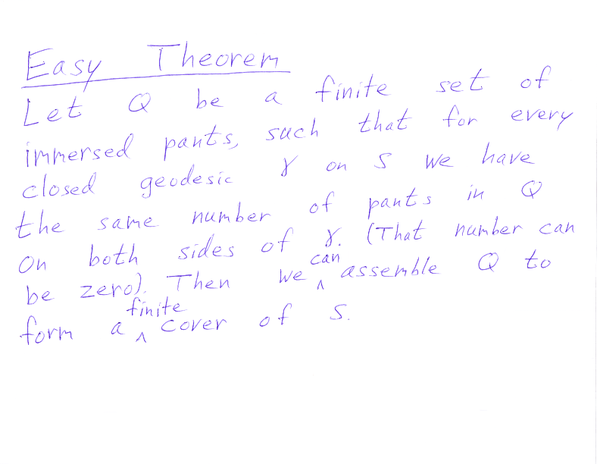 Easy Theorem
Let Q be a finite set of
immersed pants, such that for every
closed geodesic γ on S we have
the same number of pants in Q
on both sides of γ. (That number can
be zero). Then we can assemble Q to
form a finite cover of S.